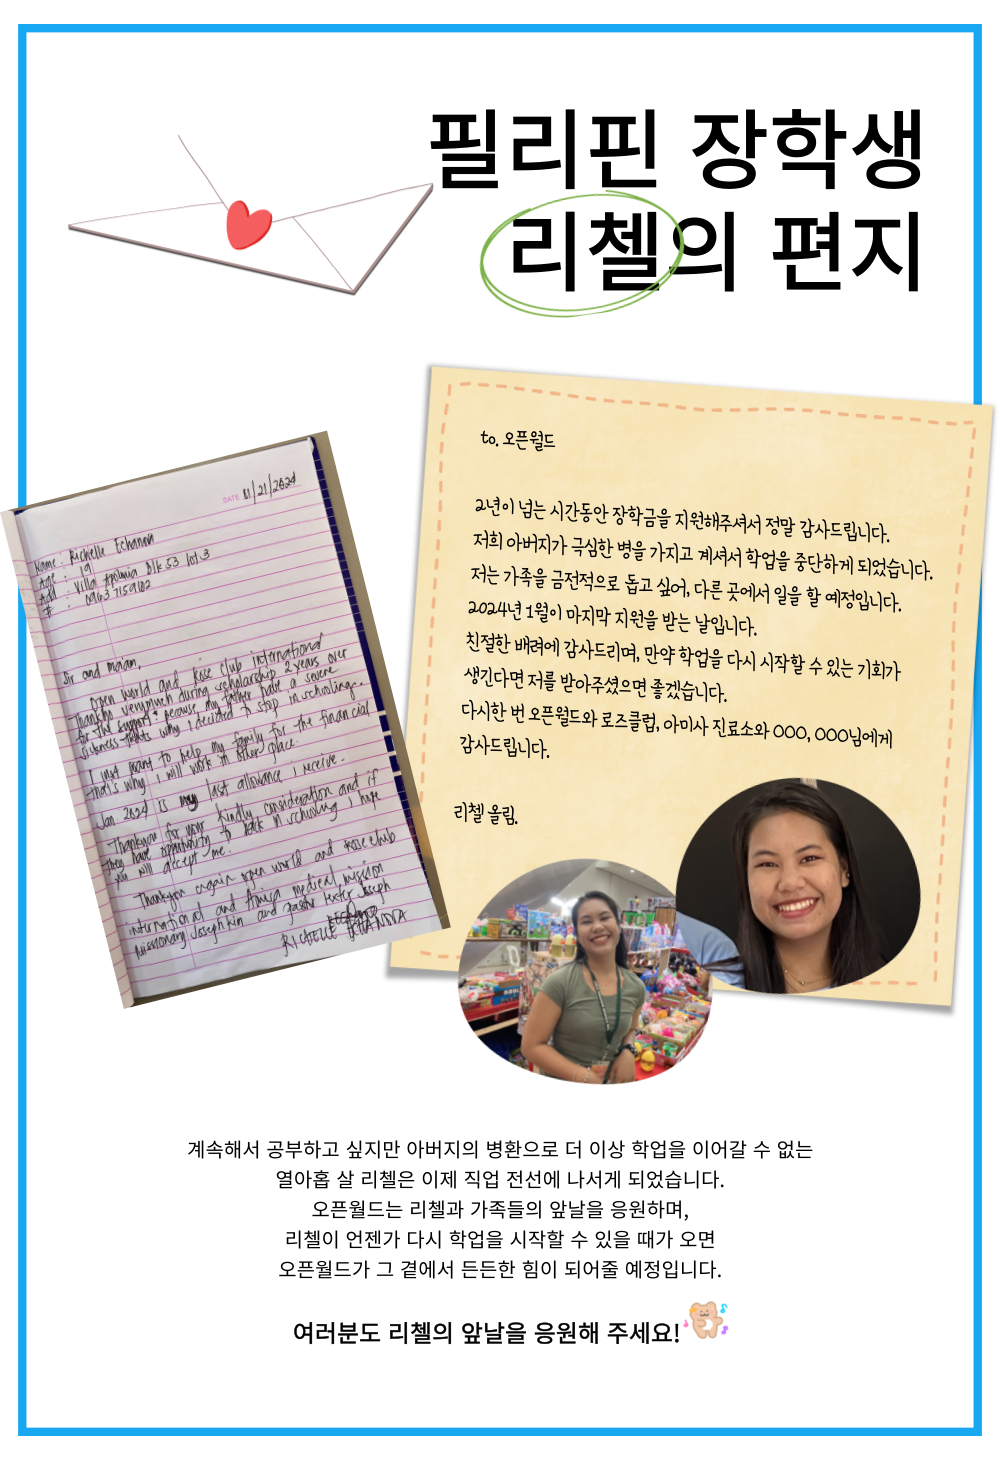 필리핀 장학생
리첼의 편지
to. 오픈월드
2년이 넘는 시간동안 장학금을 지원해주셔서 정말 감사드립니다.
저희 아버지가 극심한 병을 가지고 계셔서 학업을 중단하게 되었습니다.
저는 가족을 금전적으로 돕고 싶어, 다른 곳에서 일을 할 예정입니다.
2024년 1월이 마지막 지원을 받는 날입니다.
친절한 배려에 감사드리며, 만약 학업을 다시 시작할 수 있는 기회가
생긴다면 저를 받아주셨으면 좋겠습니다.
다시한 번 오픈월드와 로즈클럽, 아미사 진료소와 OOO, OOO님에게
감사드립니다.
리첼 올림.
DATE 01/21/2024
Name: Richelle Echanova
Age : 19
Add : Villa Apolonia Blk 53 lot 3
# : 09637159102
Sir and maam,
Open world and Rose club international
Thankyou verymuch during scholarship 2 years over
for the support because my father have a severe
sickness thats why I decided to stop in schooling.
I just want to help my family for the financial
that's why I will work in other place.
Jan. 2024 is my last allowance I receive.
Thankyou for your kindly consideration and if
they have opportunity to back in schooling I hope
you will accept me.
Thankyou again open world and rose club
international and Amisa medical mission
Missionary Joseph kin and pastor Joseph
RICHELLE ECHANOVA
계속해서 공부하고 싶지만 아버지의 병환으로 더 이상 학업을 이어갈 수 없는
열아홉 살 리첼은 이제 직업 전선에 나서게 되었습니다.
오픈월드는 리첼과 가족들의 앞날을 응원하며,
리첼이 언젠가 다시 학업을 시작할 수 있을 때가 오면
오픈월드가 그 곁에서 든든한 힘이 되어줄 예정입니다.
여러분도 리첼의 앞날을 응원해 주세요!